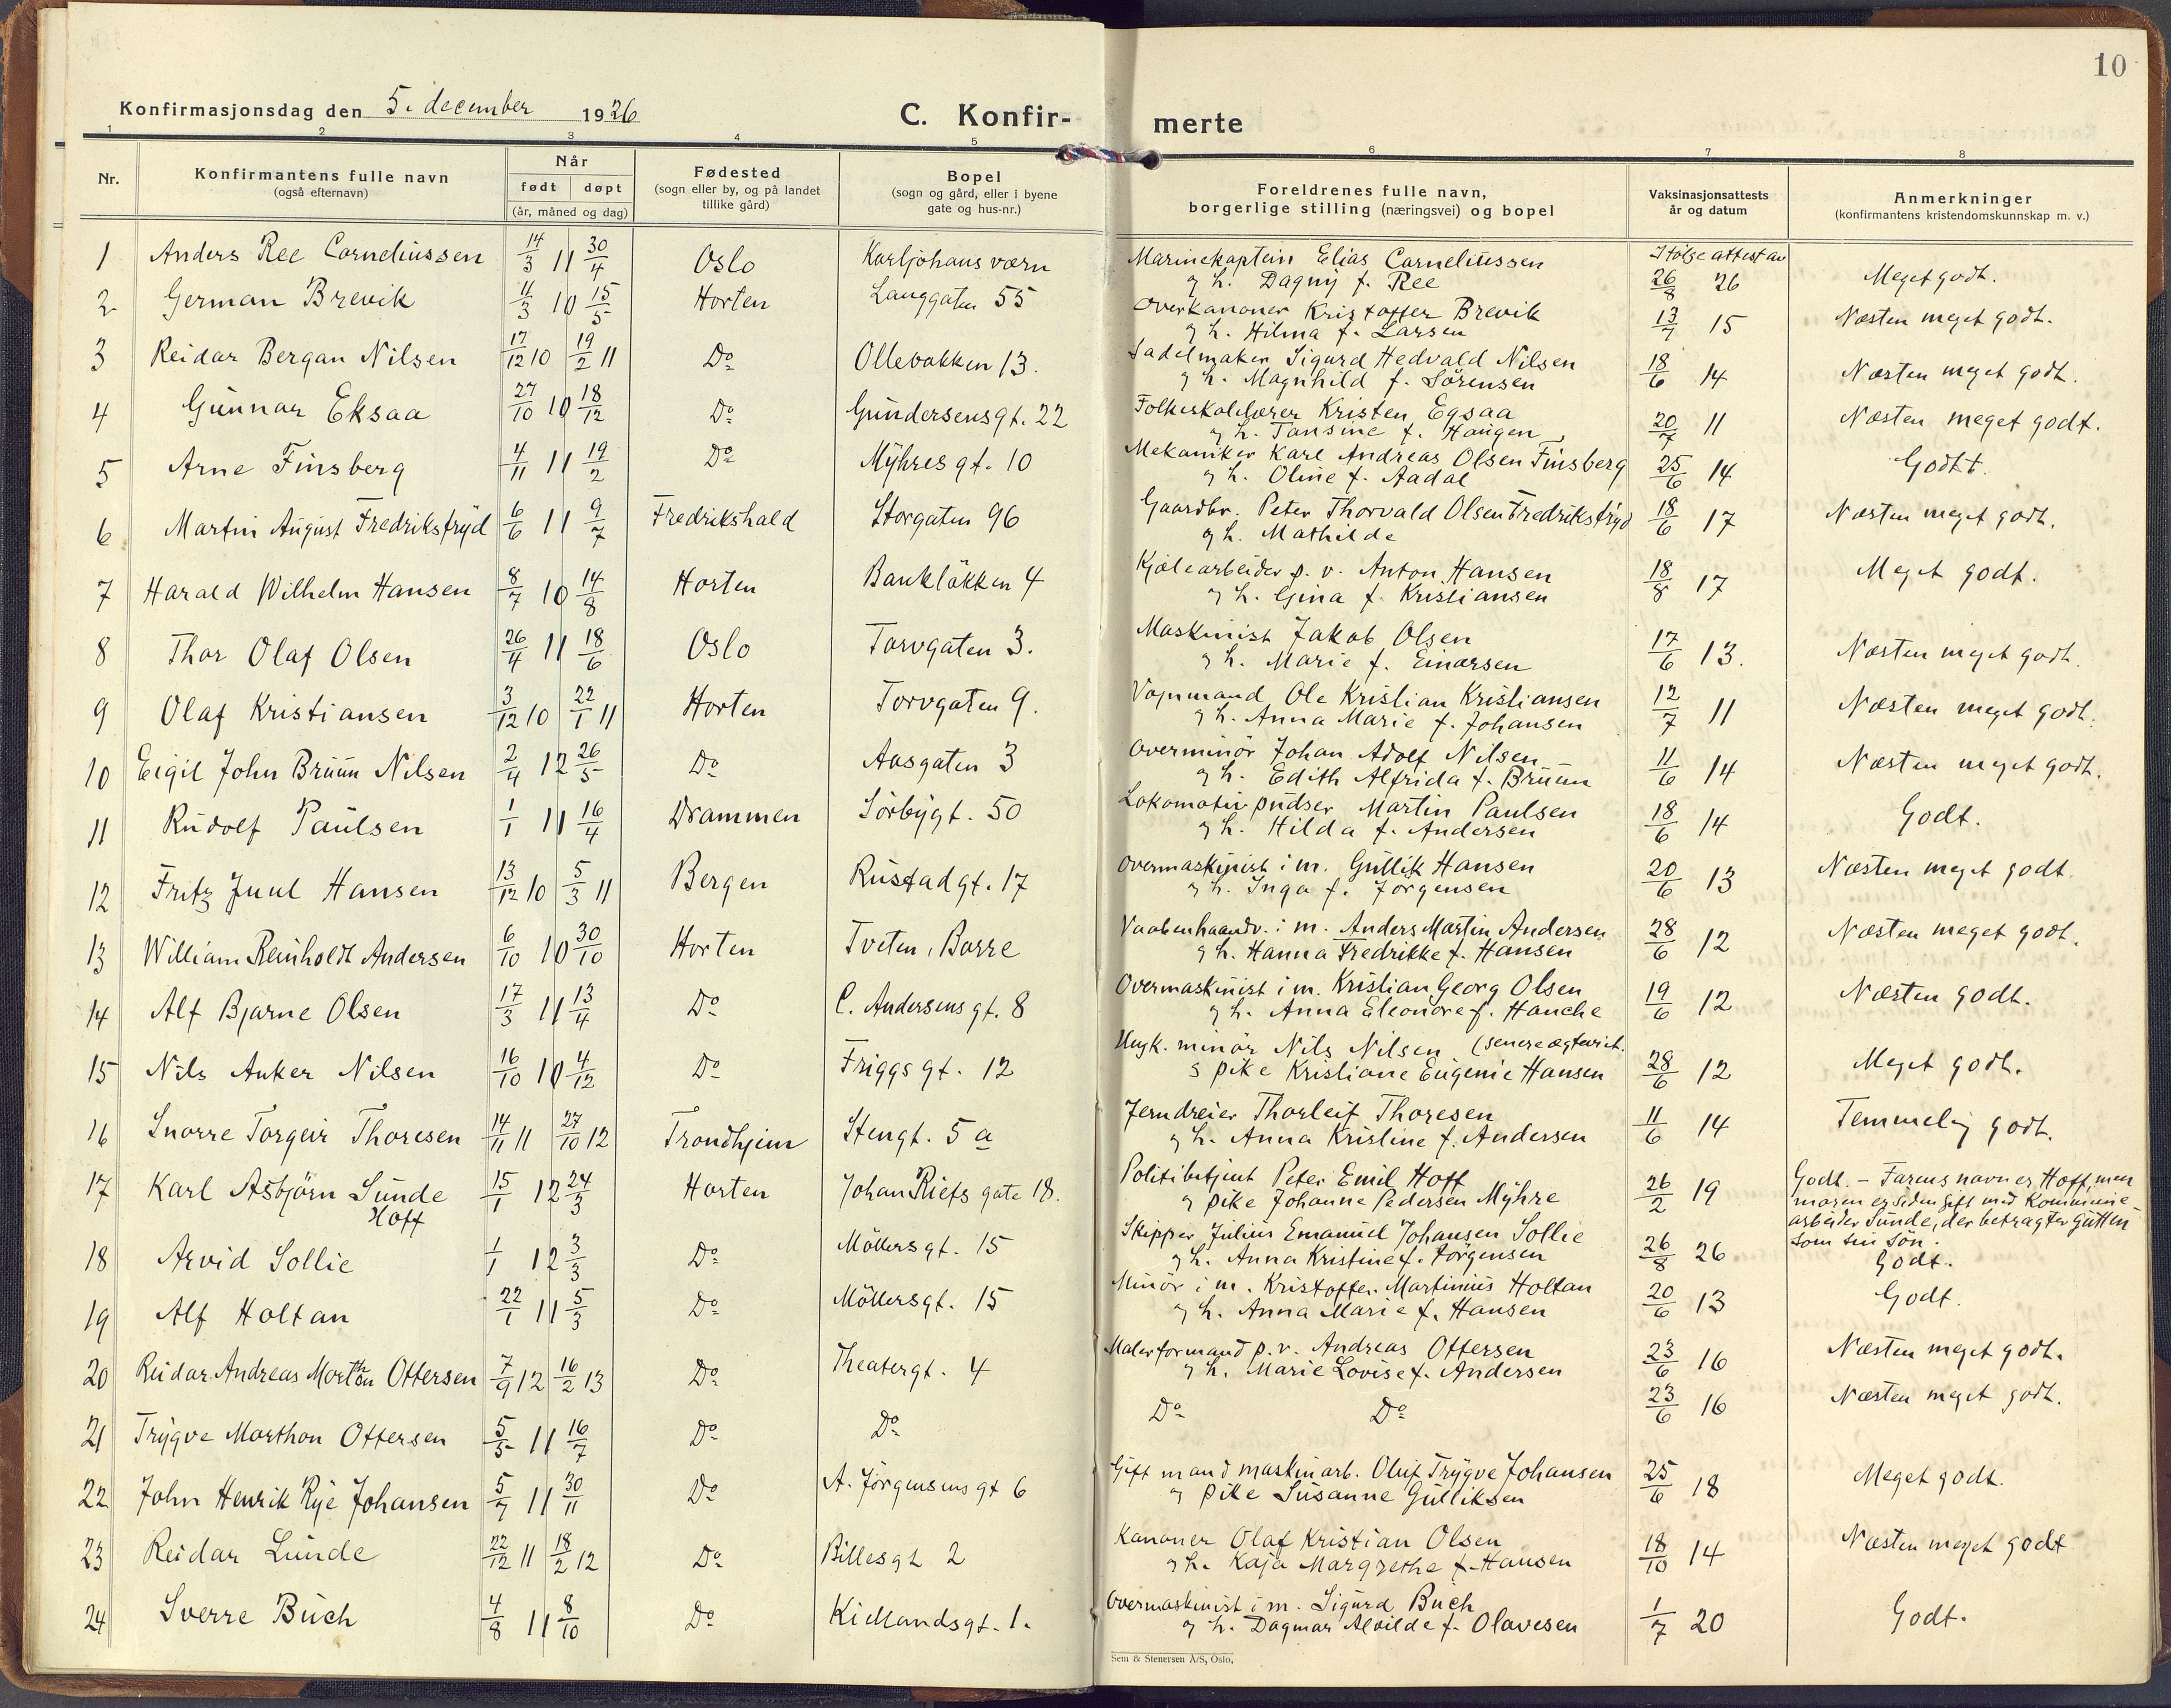 10
Konfirmasjonsdag den 5. december 1926
C. Konfir-
merte
1 2 3 4 5 6 7 8
Nr.
Konfirmantens fulle navn
(også efternavn)
Når
født døpt
(år, måned og dag)
Fødested
(sogn eller by, og på landet
tillike gård)
Bopel
(sogn og gård, eller i byene
gate og hus-nr.)
Foreldrenes fulle navn,
borgerlige stilling (næringsvei) og bopel
Vaksinasjonsattests
år og datum
Anmerkninger
(konfirmantens kristendomskunnskap m. v.)
1 Anders Ree Corneliussen 14/3 11 30/4 Oslo Karljohans værn Marinekaptein Elias Corneliussen Ifølge attest av
og h. Dagny f. Ree 26/8 26 Meget godt.
2 German Brevik 4/3 10 15/5 Horten Langgaten 55 Overkanoner Kristoffer Brevik
og h. Hilma f. Larsen 13/7 15 Næsten meget godt.
3 Reidar Bergan Nilsen 17/12 10 19/2 11 Do Ollebakken 13. Sadelmaker Sigurd Hedvald Nilsen
og h. Magnhild f. Sörensen 18/6 14 Næsten meget godt.
4 Gunnar Eksaa 27/10 10 18/12 Do Gundersensgt. 22 Folkeskolelærer Kristen Egsaa
og h. Tansine f. Haugen 20/7 11 Næsten meget godt.
5 Arne Finsberg 4/11 11 19/2 Do Myhres gt. 10 Mekaniker Karl Andreas Olsen Finsberg
og h. Oline f. Aadal 25/6 14 Godt.
6 Martin August Fredriksfryd 6/6 11 9/7 Fredrikshald Storgaten 96 Gaardbr. Peter Thorvald Olsen Fredriksfryd
og h. Mathilde 18/6 17 Næsten meget godt.
7 Harald Wilhelm Hansen 8/7 10 14/8 Horten Bankløkken 4 Kjølearbeider p. v. Anton Hansen
og h. Gina f. Kristiansen 18/8 17 Meget godt.
8 Thor Olaf Olsen 26/4 11 18/6 Oslo Torvgaten 3. Maskinist Jakob Olsen
og h. Marie f. Einarsen 17/6 13. Næsten meget godt.
9 Olaf Kristiansen 3/12 10 22/1 11 Horten Torvgaten 9. Vognmand Ole Kristian Kristiansen
og h. Anna Marie f. Johansen 12/7 11 Næsten meget godt.
10 Eigil John Bruun Nilsen 2/4 12 26/5 Do Aasgaten 3 Overminör Johan Adolf Nilsen
og h. Edith Alfrida f. Bruun 11/6 14 Næsten meget godt.
11 Rudolf Paulsen 1/1 11 16/4 Drammen Sörbygt. 50 Lokomotivpudser Martin Paulsen
og h. Hilda f. Andersen 18/6 14 Godt.
12 Fritz Juul Hansen 13/12 10 5/3 11 Bergen Rustadgt. 17 Overmaskinist i m. Gullik Hansen
og h. Inga f. Jörgensen 20/6 13 Næsten meget godt
13 William Reinholdt Andersen 6/10 10 30/10 Horten Tveten, Borre Vaabenhaandv. i m. Anders Martin Andersen
og h. Hanna Fredrikke f. Hansen 28/6 12 Næsten meget godt.
14 Alf Bjarne Olsen 17/3 11 13/4 Do C. Andersens gt. 8 Overmaskinist i m. Kristian Georg Olsen
og h. Anna Eleonore f. Hanche 19/6 12 Næsten godt.
15 Nils Anker Nilsen 16/10 10 4/12 Do Friggs gt. 12 Ungk. minör Nils Nilsen (senere egtevict.
og pike Kristiane Eugenie Hansen 28/6 12 Meget godt.
16 Snorre Torgeir Thoresen 14/11 11 27/10 12 Trondhjem Stengt. 5 a Jerndreier Thorleif Thoresen
og h. Anna Kristine f. Andersen 11/6 14 Temmelig godt.
17 Karl Asbjörn Sunde 15/1 12 24/3 Horten Johan Riefs gate 18. Politibetjent Peter Emil Hoff
Hoff
og pike Johanne Pedersen Myhre 26/2 19 Godt. - Farens navn er Hoff, men
moren er siden gift med Kommune-
arbeider Sunde, der betragter gutten
som sin sön.
18 Arvid Sollie 1/1 12 3/3 Do Möllersgt. 15 Skipper Julius Emanuel Johansen Sollie
og h. Anna Kristine f. Jörgensen 26/8 26 Godt.
19 Alf Holtan 22/1 11 5/3 Do Möllersgt. 15 Minör i m. Kristoffer Martinius Holtan
og h. Anna Marie f. Hansen 20/6 13 Godt.
20 Reidar Andreas Morthon Ottersen 7/9 12 16/2 13 Do Theatergt. 4 Malerformand p. v. Andreas Ottersen
og h. Marie Lovise f. Andersen 23/6 16 Næsten meget godt.
21 Trygve Morthon Ottersen 5/5 11 16/7 Do Do Do Do 23/6 16 Næsten meget godt.
22 John Henrik Rye Johansen 5/7 11 30/11 Do A. Jørgensens gt 6 Gift mand maskinarb. Oluf Trygve Johansen
og pike Susanne Gulliksen 25/6 18 Meget godt.
23 Reidar Lunde 22/12 11 18/2 12 Do Billesgt 2 Kanoner Olaf Kristian Olsen
og h. Kaja Margrethe f. Hansen 18/10 14 Næsten meget godt
24 Sverre Buch 4/8 11 8/10 Do Kiellandsgt. 1. Overmaskinist i m. Sigurd Buch
og h. Dagmar Alvilde f. Olavesen 1/7 20 Godt.
Sem & Stenersen A/S, Oslo.